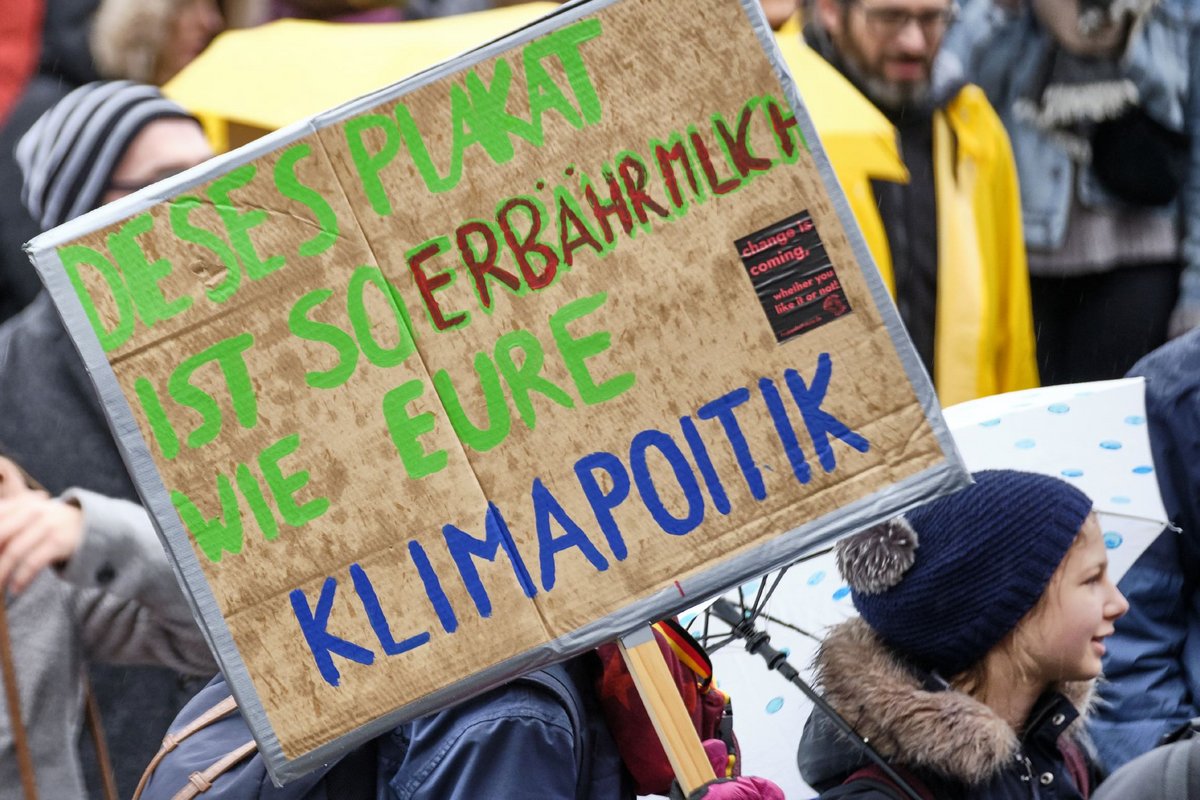 DIESES PLAKAT
IST SO ERBÄHRMLICH
WIE EURE
KLIMAPOITIK
change is
coming,
whether you
like it or not!